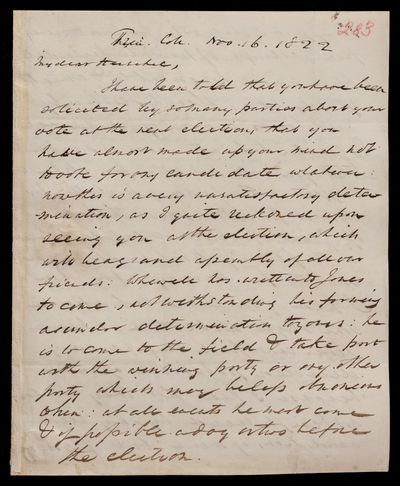 283
Trin. Coll. Nov. 16. 1822
My dear Herschel,
I have been told that you have been
solicited by so many parties about your
vote at the next election, that you
have almost made up your mind not
to vote for any candidate whatever:
now this is a very unsatisfactory deter
mination, as I quite reckoned upon
seeing you at the election, which
will be a grand assembly of all our
friends: Whewell has written to Jones
to come, notwithstanding his forming
a similar determination to yours: he
is to come to the field & take part
with the winning party or any other
party which may be less obnoxious
then: at all events he must come
& if possible a day or two before
the election.